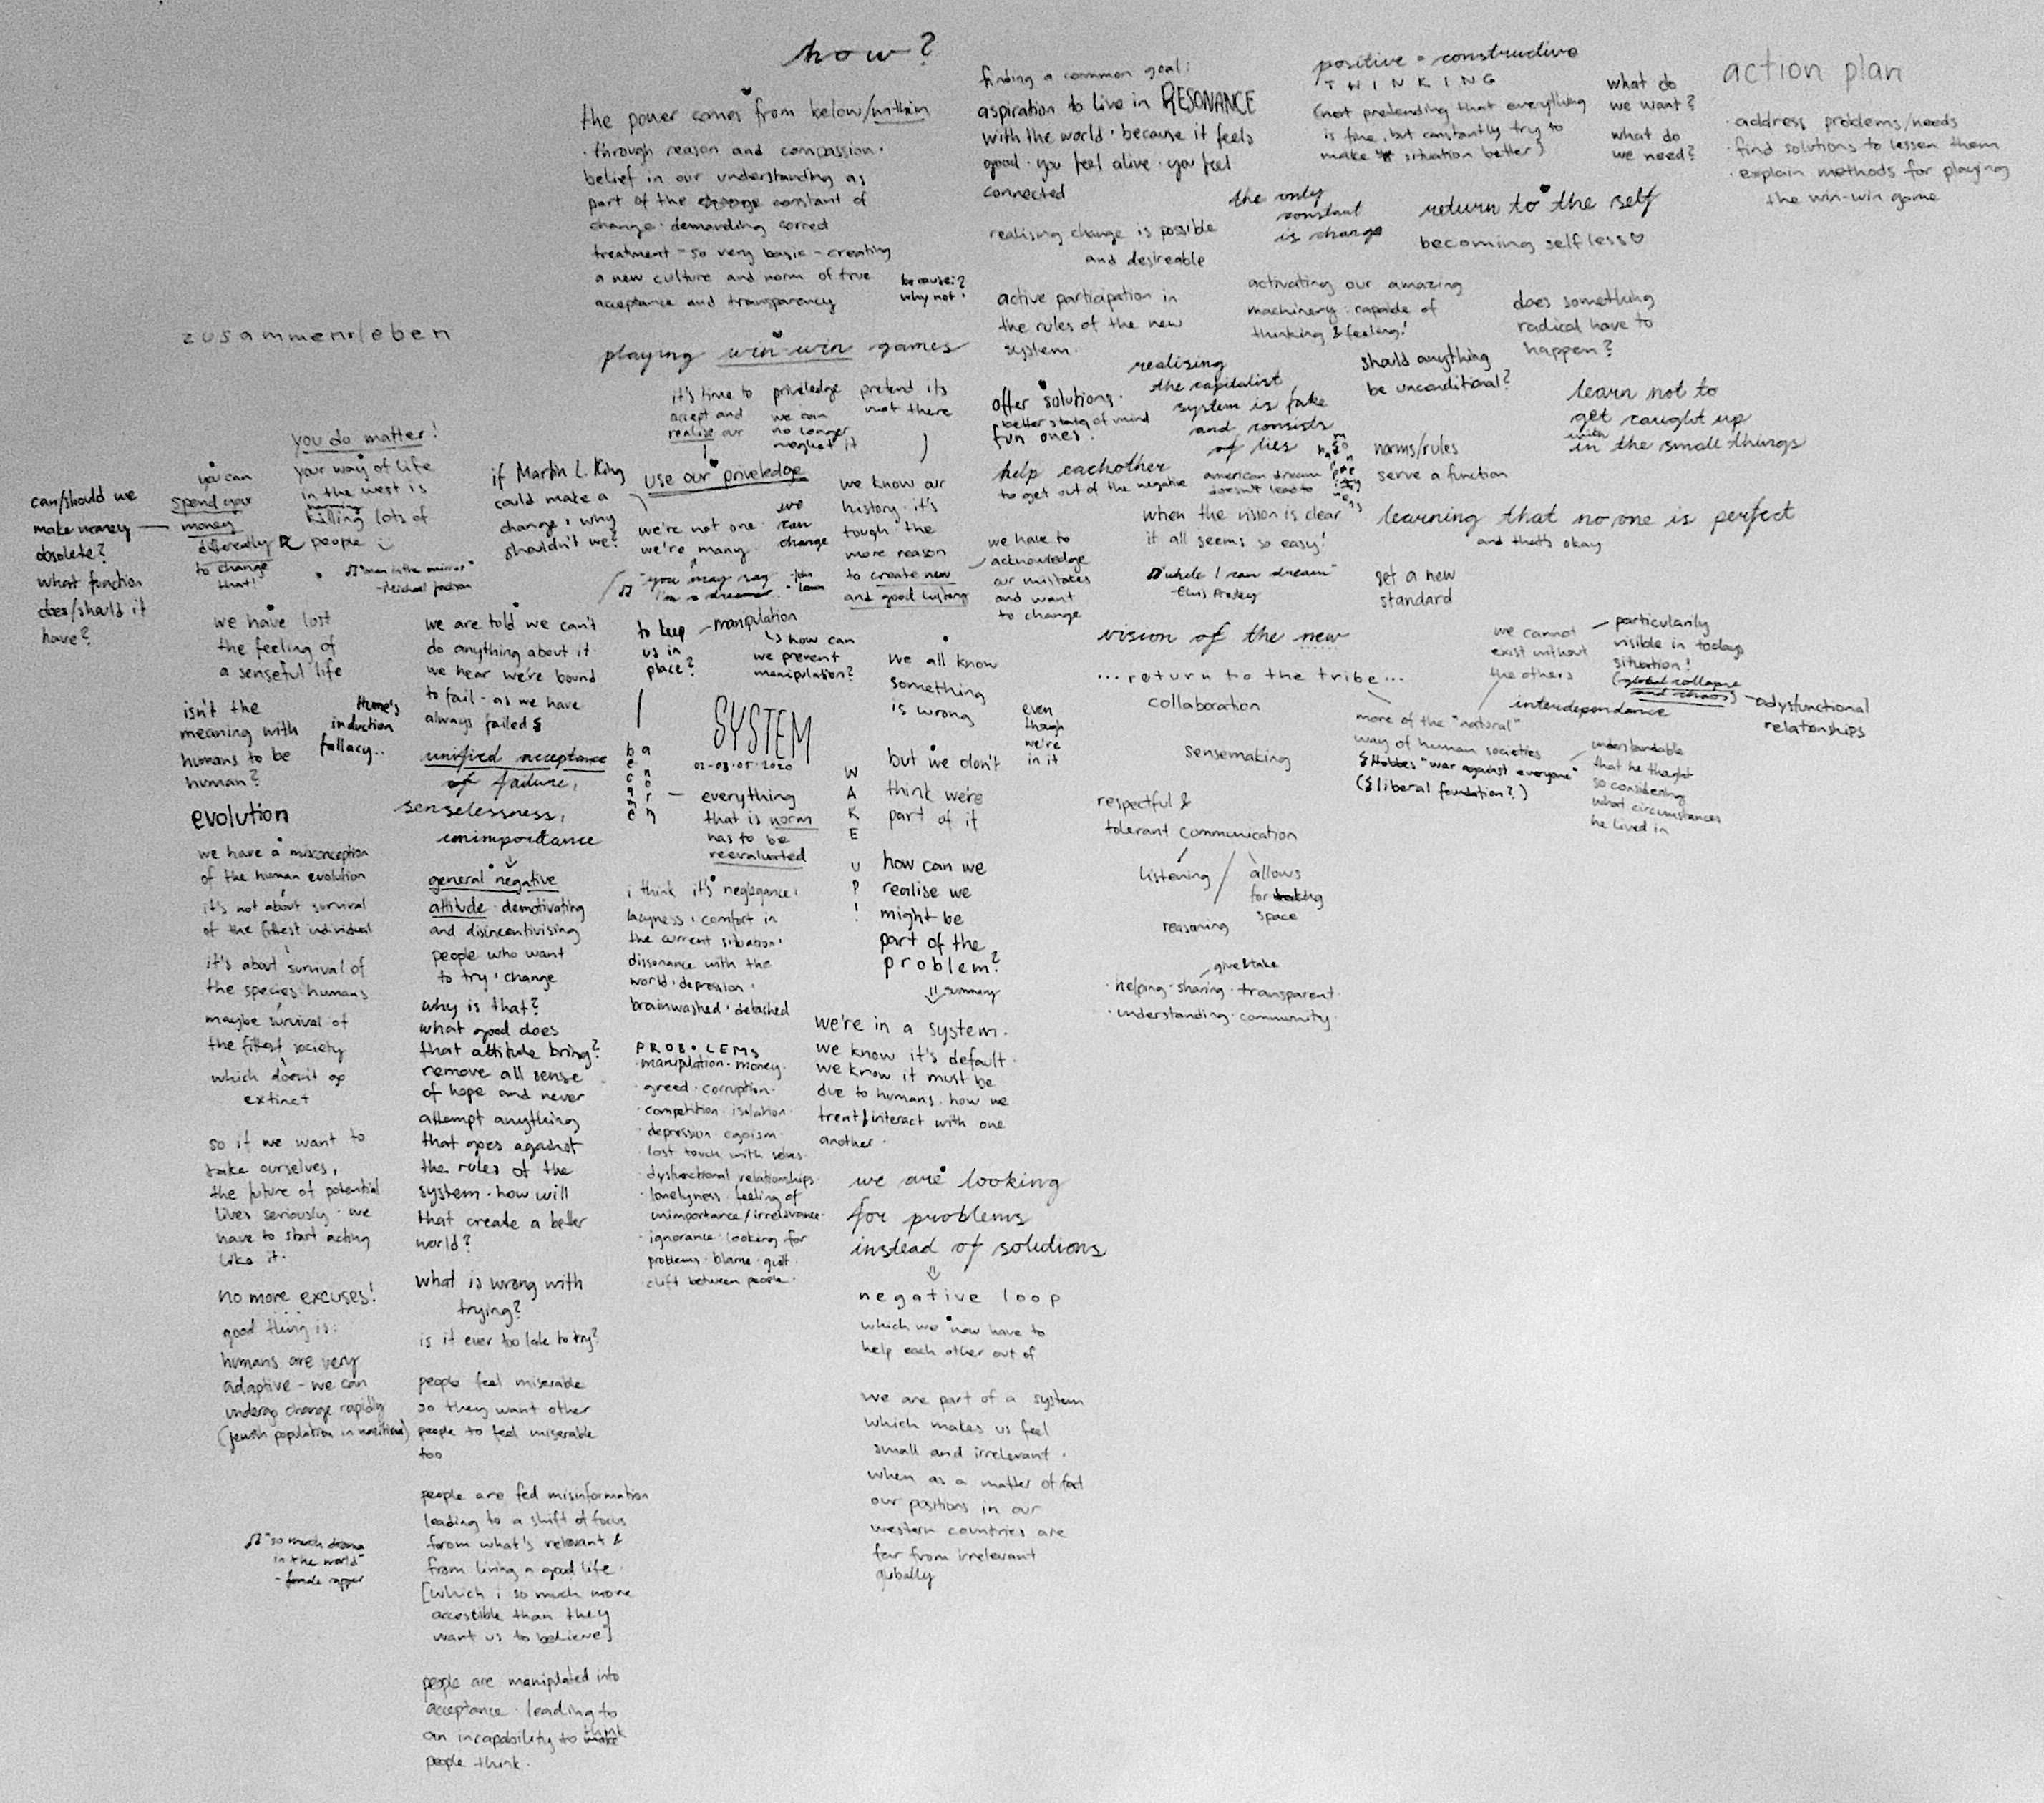 how?
the power comes from below/within
· through reason and compassion ·
belief in our understanding as
part of the constant of
change · demanding correct
treatment - so very basic - creating
a new culture and norm of true
acceptance and transparency
because?
why not!
finding a common goal:
aspiration to live in RESONANCE
with the world · because it feels
good · you feel alive · you feel
connected
realising change is possible
and desireable
active participation in
the rules of the new
system.
positive = constructive
THINKING
(not pretending that everything
is fine, but constantly try to
make situation better)
what do
we want?
what do
we need?
action plan
· address problems/needs
· find solutions to lessen them
· explain methods for playing
the win-win game
the only
constant
is change
return to the self
becoming selfless♡
activating our amazing
machinery: capable of
thinking & feeling!
does something
radical have to
happen?
should anything
be unconditional?
norms/rules
serve a function
learn not to
get caught up
with
in the small things
learning that no one is perfect
and thats okay
set a new
standard
zusammen/leben
playing win-win games
it's time to
accept and
realise our
priviledge
we can
no longer
neglect it
pretend its
not there
use our priviledge
offer solutions ·
better states of mind
fun ones!
help eachother
to get out of the negative
realising
the capitalist
system is fake
and consists
of lies
american dream
doesn't lead to
happiness
when the vision is clear
it all seems so easy!
♫ "while I can dream"
- Elvis Presley
you do matter!
your way of life
in the west is
killing lots of
people
♫ "man in the mirror"
- Michael Jackson
you can
spend your
money
differently
to change
that!
can/should we
make money
obsolete?
what function
does/should it
have?
if Martin L. King
could make a
change, why
shouldn't we?
we're not one ·
we're many ·
we
can
change
♫ "you may say
i'm a dreamer"
we know our
history · it's
tough · the
more reason
to create new
and good history
we have to
acknowledge
our mistakes
and want
to change
we have lost
the feeling of
a senseful life
isn't the
meaning with
humans to be
human?
Hume's
induction
fallacy..
we are told we can't
do anything about it ·
we hear we're bound
to fail - as we have
always failed
unified acceptance
of failure,
senselessness,
unimportance
to keep
us in
place?
manipulation
how can
we prevent
manipulation?
SYSTEM
02-03·05·2020
became
a norm
everything
that is norm
has to be
reevaluated
i think it's neglegance,
lazyness, comfort in
the current situation,
dissonance with the
world, depression,
brainwashed, detached
we all know
something
is wrong
even
though
we're
in it
but we don't
think we're
part of it
WAKE UP!
how can we
realise we
might be
part of the
problem?
summary
we're in a system.
we know it's default.
we know it must be
due to humans, how we
treat & interact with one
another.
we are looking
for problems
instead of solutions
negative loop
which we now have to
help each other out of
we are part of a system
which makes us feel
small and irrelevant.
when as a matter of fact
our positions in our
western countries are
far from irrelevant
globally
PROBLEMS
· manipulation · money ·
· greed · corruption ·
· competition · isolation ·
· depression · egoism ·
· lost touch with selves ·
· dysfunctional relationships ·
· lonelyness · feeling of
unimportance/irrelevance ·
· ignorance · looking for
problems · blame · guilt ·
· clift between people ·
evolution
we have a misconception
of the human evolution
it's not about survival
of the fittest individual
it's about survival of
the species: humans
maybe survival of
the fittest society
which doesn't go
extinct
so if we want to
take ourselves,
the future of potential
lives seriously · we
have to start acting
like it ·
no more excuses!
good thing is:
humans are very
adaptive - we can
undergo change rapidly
♫ "so much drama
in the world"
- female rapper
general negative
attitude · demotivating
and disincentivising
people who want
to try, change
why is that?
what good does
that attitude bring?
remove all sense
of hope and never
attempt anything
that goes against
the rules of the
system · how will
that create a better
world?
what is wrong with
trying?
is it ever too late to try?
people feel miserable
so they want other
people to feel miserable
too
people are fed misinformation
leading to a shift of focus
forom what's relevant &
from living a good life ·
[which i so much more
accessible than they
want us to believe]
people are manipulated into
acceptance · leading to
an incapability to think
people think.
vision of the new
...return to the tribe...
collaboration
sensemaking
respectful &
tolerant communication
listening
allows
for
space
reasoning
give & take
· helping · sharing · transparent ·
· understanding · community ·
we cannot
exist without
the others
interdependance
particularily
visible in todays
situation!
(global collapse
and chaos)
dysfunctional
relationships
more of the "natural"
way of human societies
Hobbes "war against everyone"
(liberal foundation?)
understandable
that he thought
so considering
what circumstances
he lived in